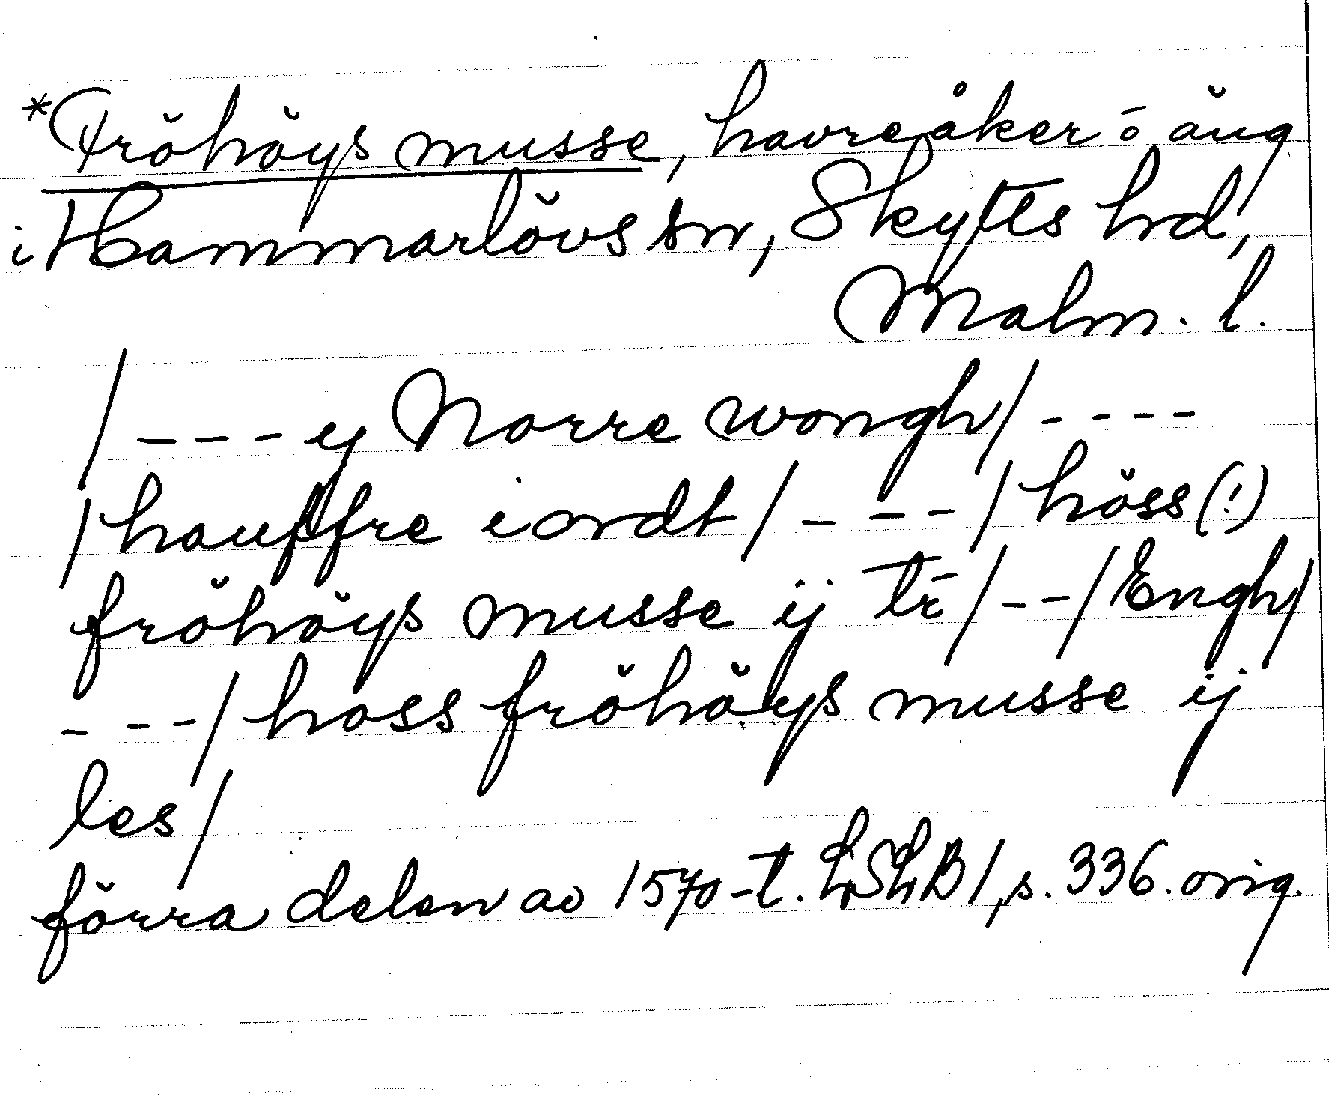 *Fröhöys musse, havreåker o äng
i Hammarlövs sn, Skytts hd,
Malm. l.
/ - - - y Norre wongh/ - - - -
/hauffre iordt/ - - - / höss (!)
fröhöys musse ij tr̄ / - - / Engh/
- - - / hoss fröhöys musse ij
les/
förra delen av 1570-t. LSLB1, s. 336. orig.